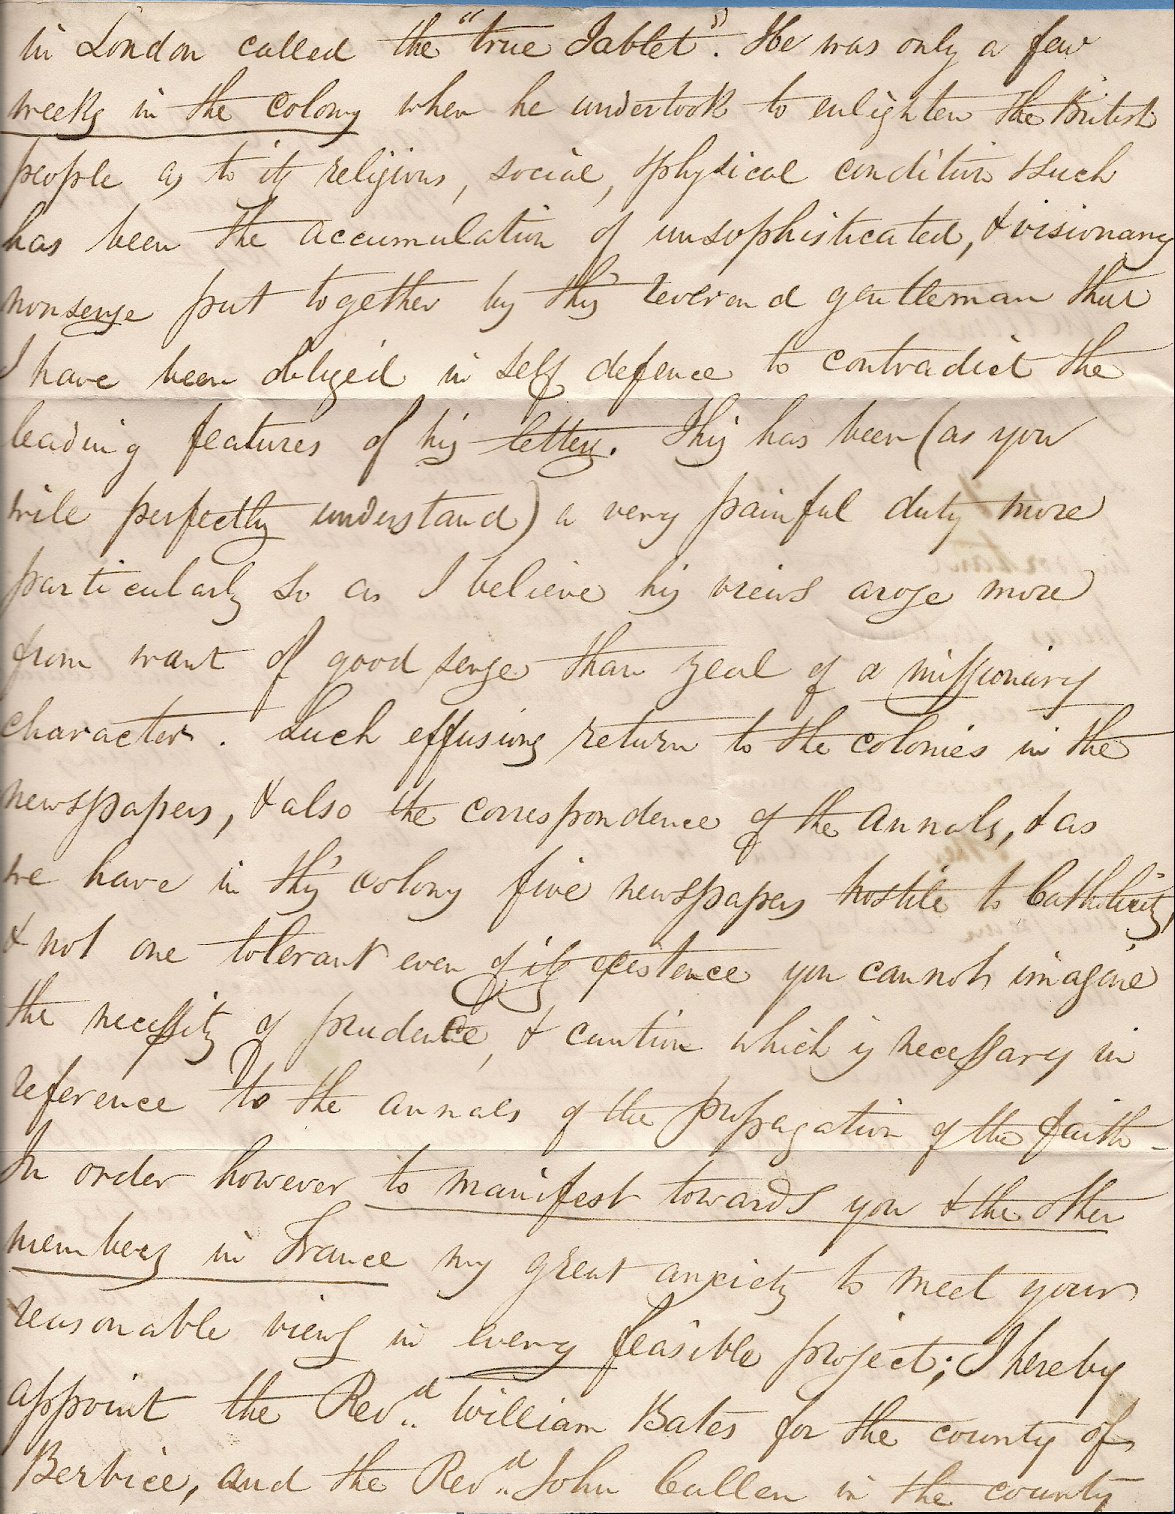 in London called the "true Tablet". He was only a few
weeks in the colony when he undertook to enlighten the British
people as to its religious, social, & physical condition & such
has been the accumulation of unsophisticated, & visionary
nonsense put together by this reverend gentleman that
I have been obliged in self defence to contradict the
leading features of his letters. This has been (as you
will perfectly understand) a very painful duty more
particularly so as I believe his views arose more
from want of good sense than zeal of a missionary
character. Such effusions return to the colonies in the
newspapers, & also the correspondence of the Annals, & as
we have in this colony five newspapers hostile to Catholicity,
& not one tolerant even of its existence you cannot imagine
the necessity of prudence, & caution which is necessary in
reference to the annals of the propagation of the faith -
In order however to manifest towards you & the other
members in France my great anxiety to meet your
reasonable views in every feasible project; I hereby
appoint the Revd. William Bates for the county of
Berbice, and the Revd. John Cullen in the county